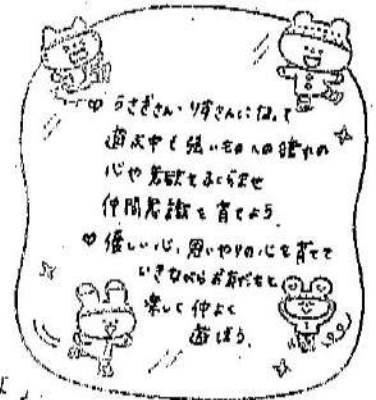 ♡ うさぎさん・りすさんになって
遊ぶ中で強いものへの憧れの
心や意欲をふくらませ
仲間意識を育てよう。
♡ 優しい心、思いやりの心を育てて
いきながらお友だちと
楽しく仲よく
遊ぼう。